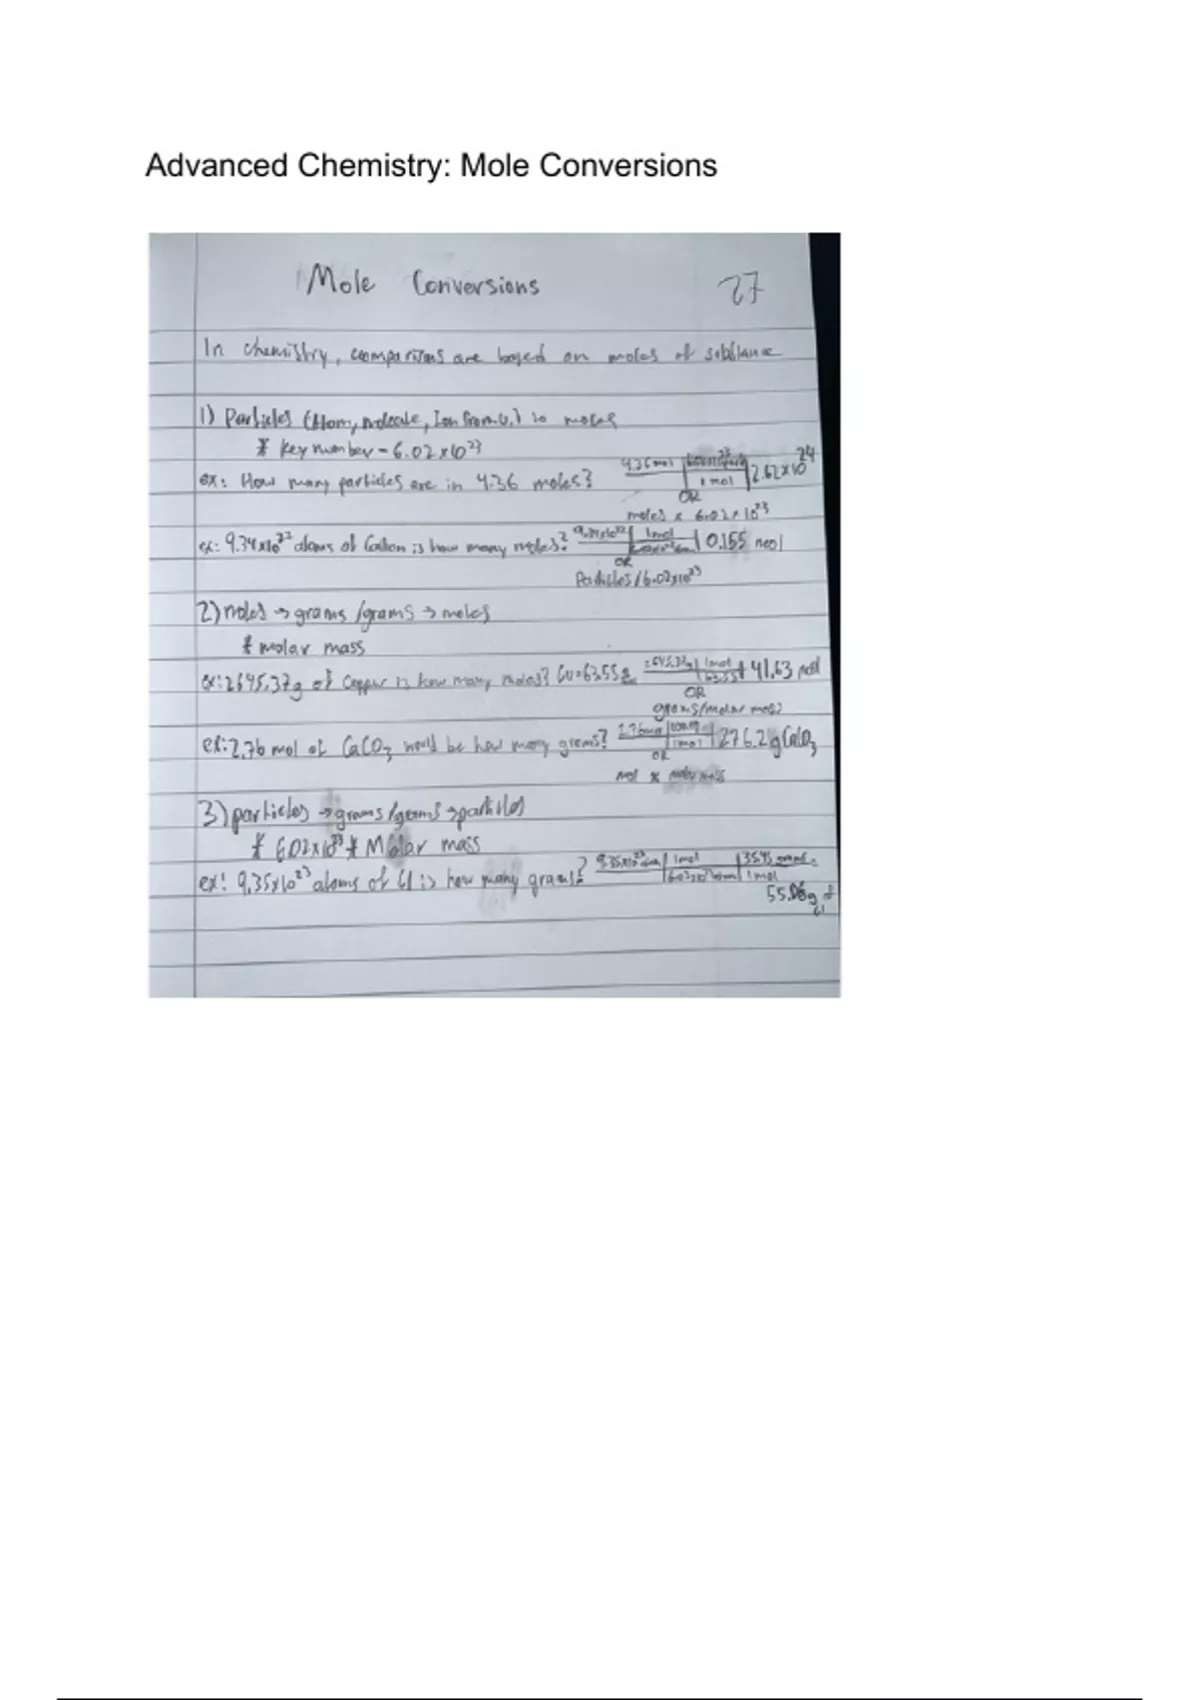 Advanced Chemistry: Mole Conversions
Mole Conversions 27
In chemistry, comparisons are based on moles of substance
1) Particles (Atom, molecule, Ion, Form.U.) to moles
* Key number = 6.02x10²³
ex: How many particles are in 4.36 moles? 4.36 mol | 1 mol | 2.62x10²⁴
OR
moles x 6.02x10²³
ex: 9.34x10²² atoms of is how many moles? 9.34x10²² | 1mol | 0.155 mol
OR
Particles/6.02x10²³
2) moles → grams/grams → moles
* molar mass
ex: 2645.37g of Copper is how many moles? Cu=63.55g 2645.37g | 1mol 63.55 | 41.63 mol
OR
grams/molar mass
ex: 2.76 mol of CaCO₃ would be how many grams? 2.76mol | 1mol | 276.2g CaCO₃
OR
mol x molar mass
3) particles → grams/grams → particles
* 6.02x10²³ * Molar mass
ex: 9.35x10²³ atoms of Cl is how many grams? 9.35x10²³ | 1mol | 35.45 grams =
1mol
g of
Cl